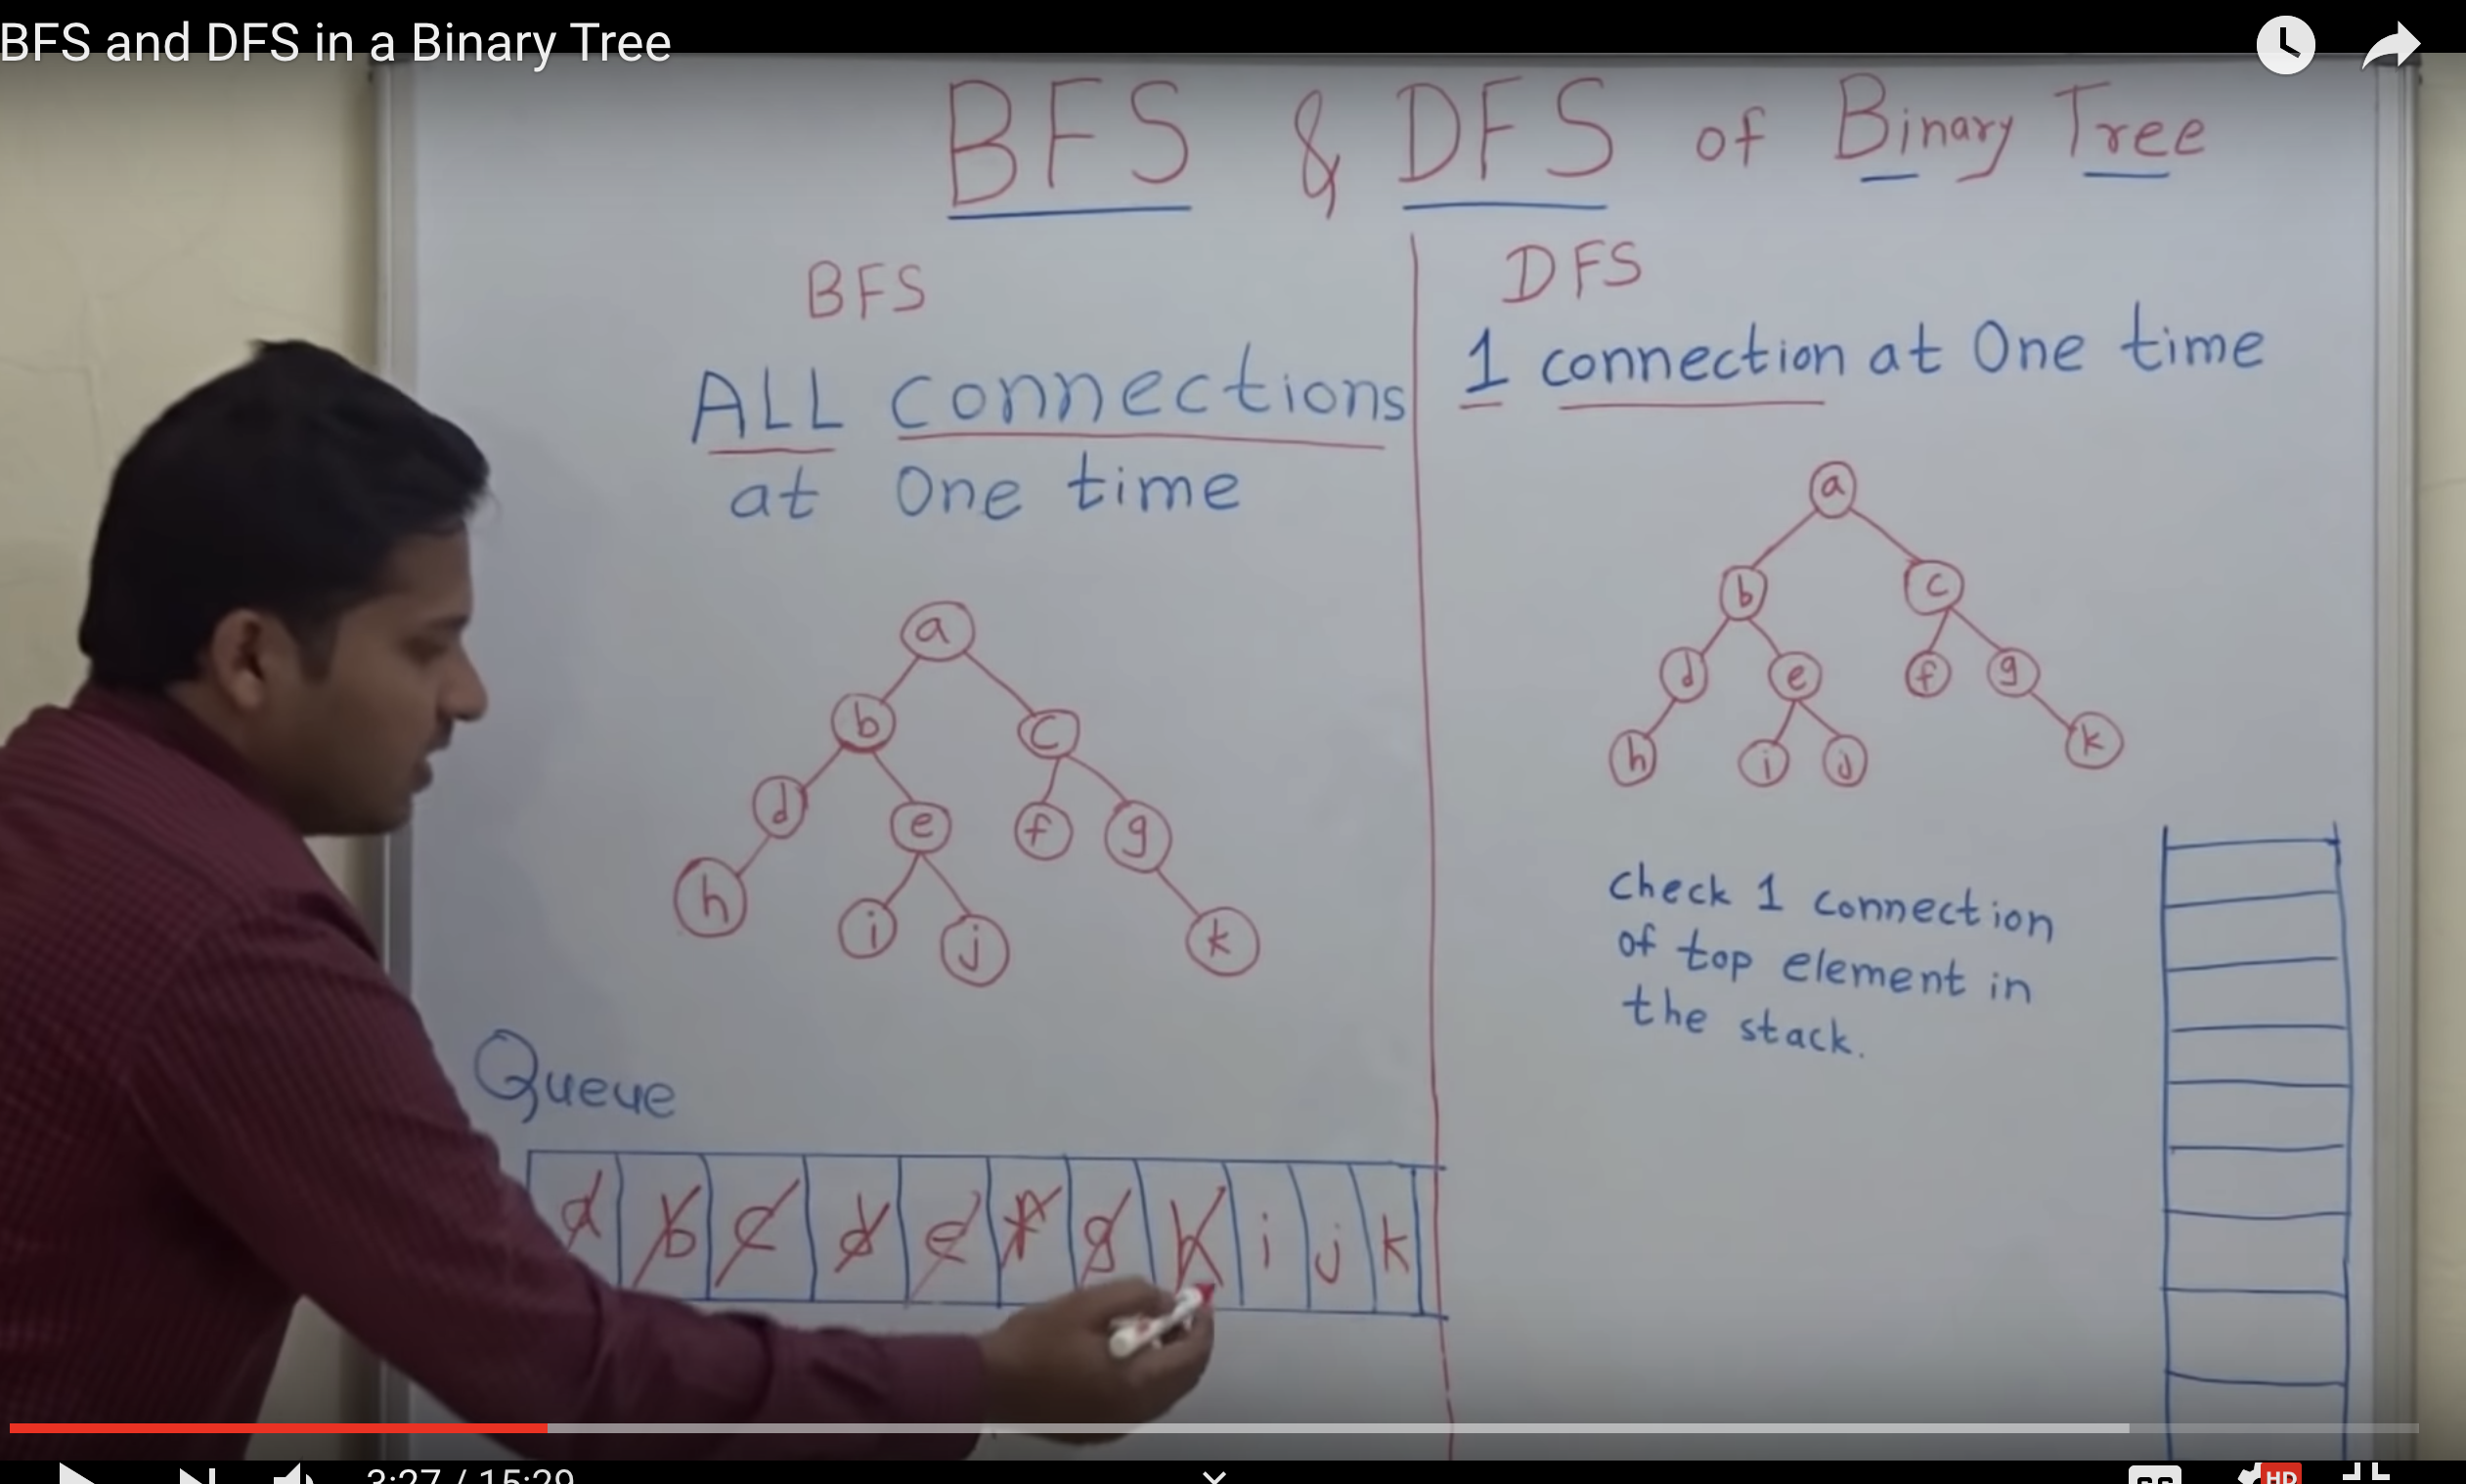 BFS and DFS in a Binary Tree
BFS & DFS of Binary Tree
BFS
ALL connections
at One time
a
b
c
d
e
f
g
h
i
j
k
Queue
a b c d e f g h i j k
DFS
1 connection at One time
a
b
c
d
e
f
g
h
i
j
k
check 1 connection
of top element in
the stack.
3:27 / 15:29
HD